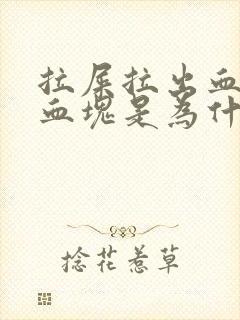 拉屎拉出血
血块是为什
捻花惹草